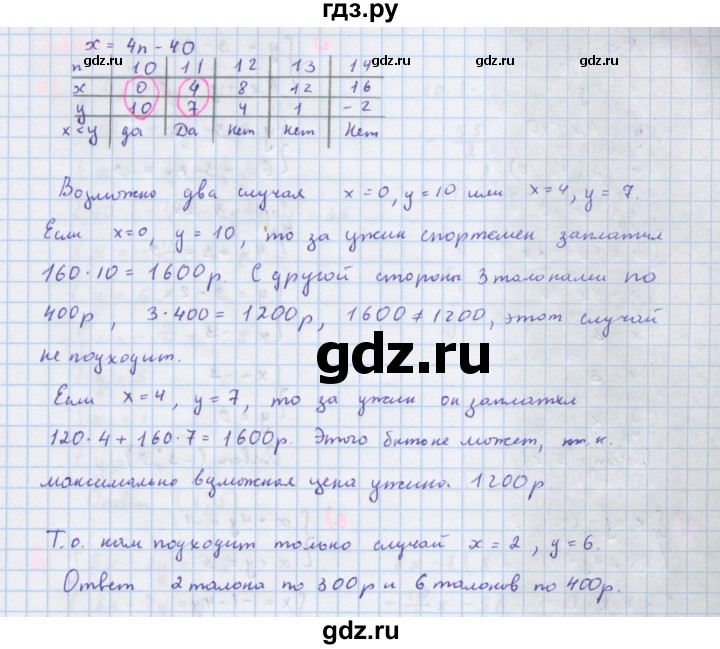 гдз.ру
x = 4n - 40
n 10 11 12 13 14
gdz.ru gdz.ru gdz.ru gdz.ru
x 0 4 8 12 16
y 10 7 4 1 -2
x < y да Да Нет Нет Нет
Возможно два случая x = 0, y = 10 или x = 4, y = 7.
gdz.ru gdz.ru
Если x = 0, y = 10, то за ужин спортсмен заплатил
160 · 10 = 1600 р. С другой стороны 3 талонами по
400 р, 3 · 400 = 1200 р, 1600 ≠ 1200, этот случай
не подходит.
gdz.ru
gdz.ru gdz.ru
Если x = 4, y = 7, то за ужин он заплатил
120 · 4 + 160 · 7 = 1600 р. Этого быть не может, т.к.
максимально возможная цена ужина. 1200 р
gdz.ru gdz.ru
Т.о. нам подходит только случай x = 2, y = 6.
Ответ 2 талона по 300 р и 6 талонов по 400 р.
gdz.ru